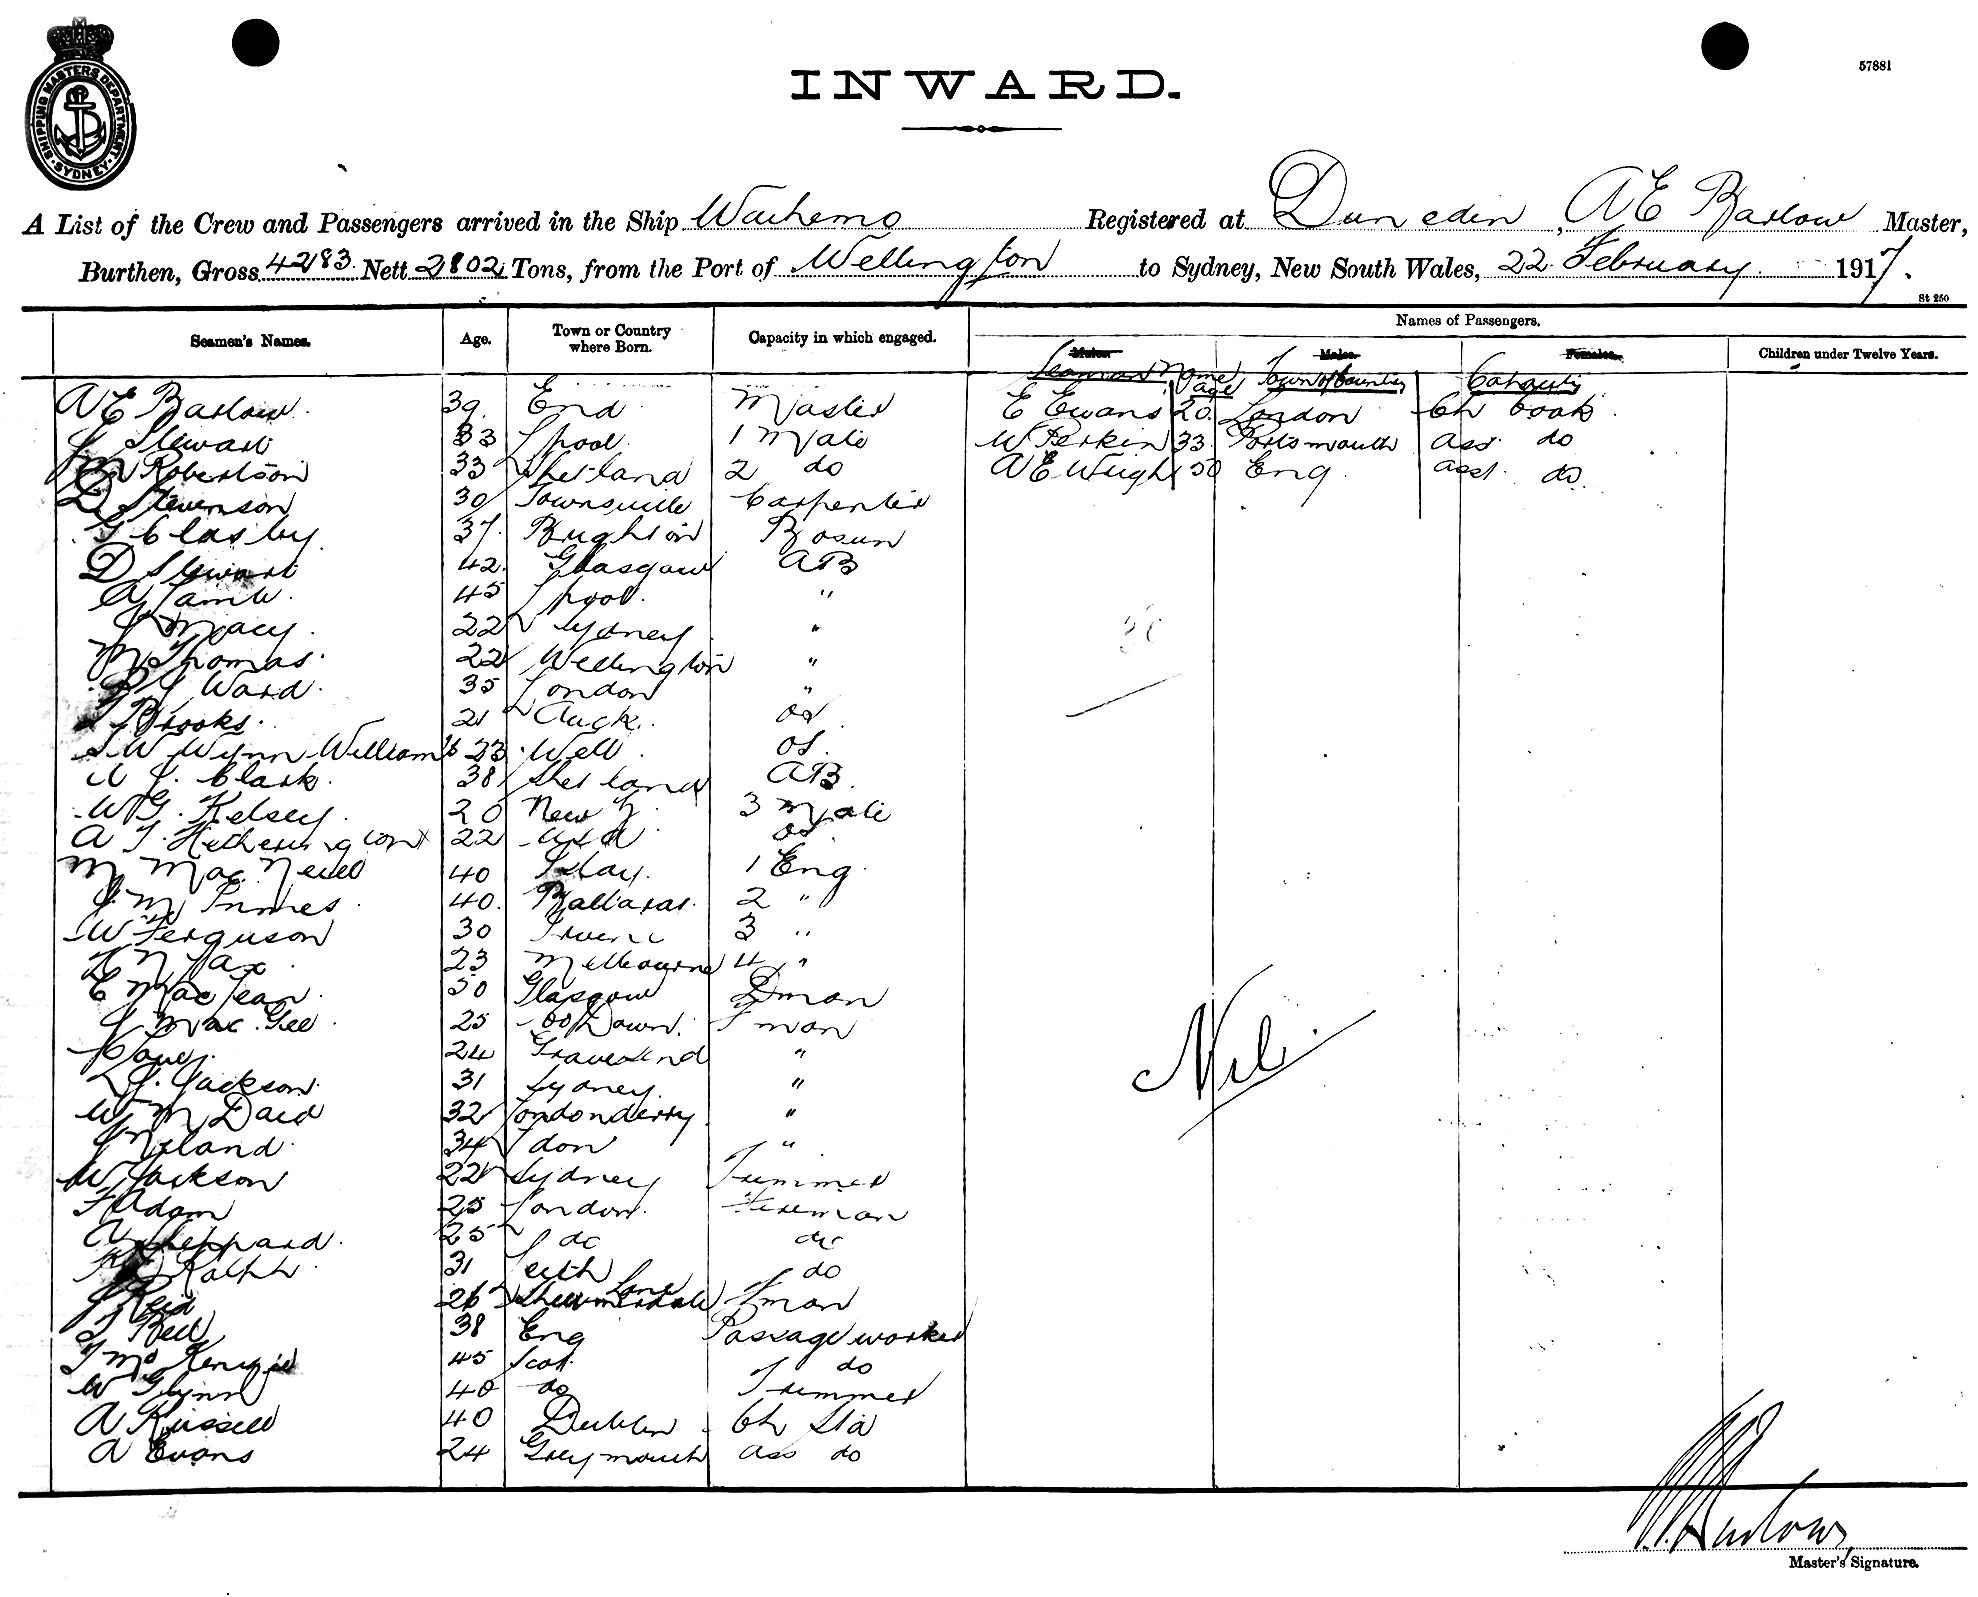 SHIPPING MASTERS DEPARTMENT · SYDNEY ·
57881
INWARD.
A List of the Crew and Passengers arrived in the Ship Waihemo Registered at Dunedin, A E Barlow Master,
Burthen, Gross 4283 Nett 2802 Tons, from the Port of Wellington to Sydney, New South Wales, 22 February 1917.
St 250
Seamen's Names. Age. Town or Country where Born. Capacity in which engaged. Names of Passengers.
Males. Males. Females. Children under Twelve Years.
Seamans Name age Town or Country Capacity
A E Barlow 39 Eng Master E Ewans 20 London Ch Cook
Stewart 33 L'pool 1 Mate W Perkin 33 Portsmouth ass do
Robertson 33 Shetland 2 do A E Weigh 50 Eng asst do
D Stevenson 30 Townsville Carpenter
G Clasby 37 Brighton Bosun
D Stewart 42 Glasgow AB
A Lamb 45 L'pool "
J Macy 22 Sydney "
M Thomas 22 Wellington "
Ward 35 London "
Brooks 21 Auck. os
Wynn Williams 23 Well os
Clark 38 Shetland AB
W G. Kelsey 20 New Z 3 Mate
A T. Hetherington 22 os
M Mac Neill 40 Islay 1 Eng
J M Innes 40 Ballarat 2 "
W Ferguson 30 Irvine 3 "
23 Melbourne 4 "
C MacLean 50 Glasgow Dman
J Mac Gee 25 Co Down Fman
24 Gravesend "
Jackson 31 Sydney "
W 32 Londonderry "
34 Ldon "
W Jackson 22 Sydney Trimmer
F Adam 25 London Fireman
A Sheppard 25 do do
Ralph 31 Leith do
J Reid 26 Fman
Bell 38 Eng Passage worker
Mc Kenzie 45 Scot do
W Glynn 40 do Trimmer
A Russell 40 Dublin Ch Std
A Evans 24 Greymouth ass do
Nil
Barlow
Master's Signature.